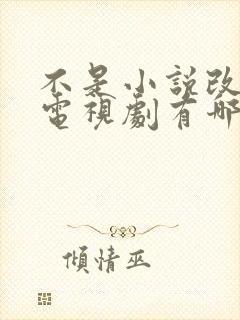 不是小說改
電視劇有哪
傾情巫